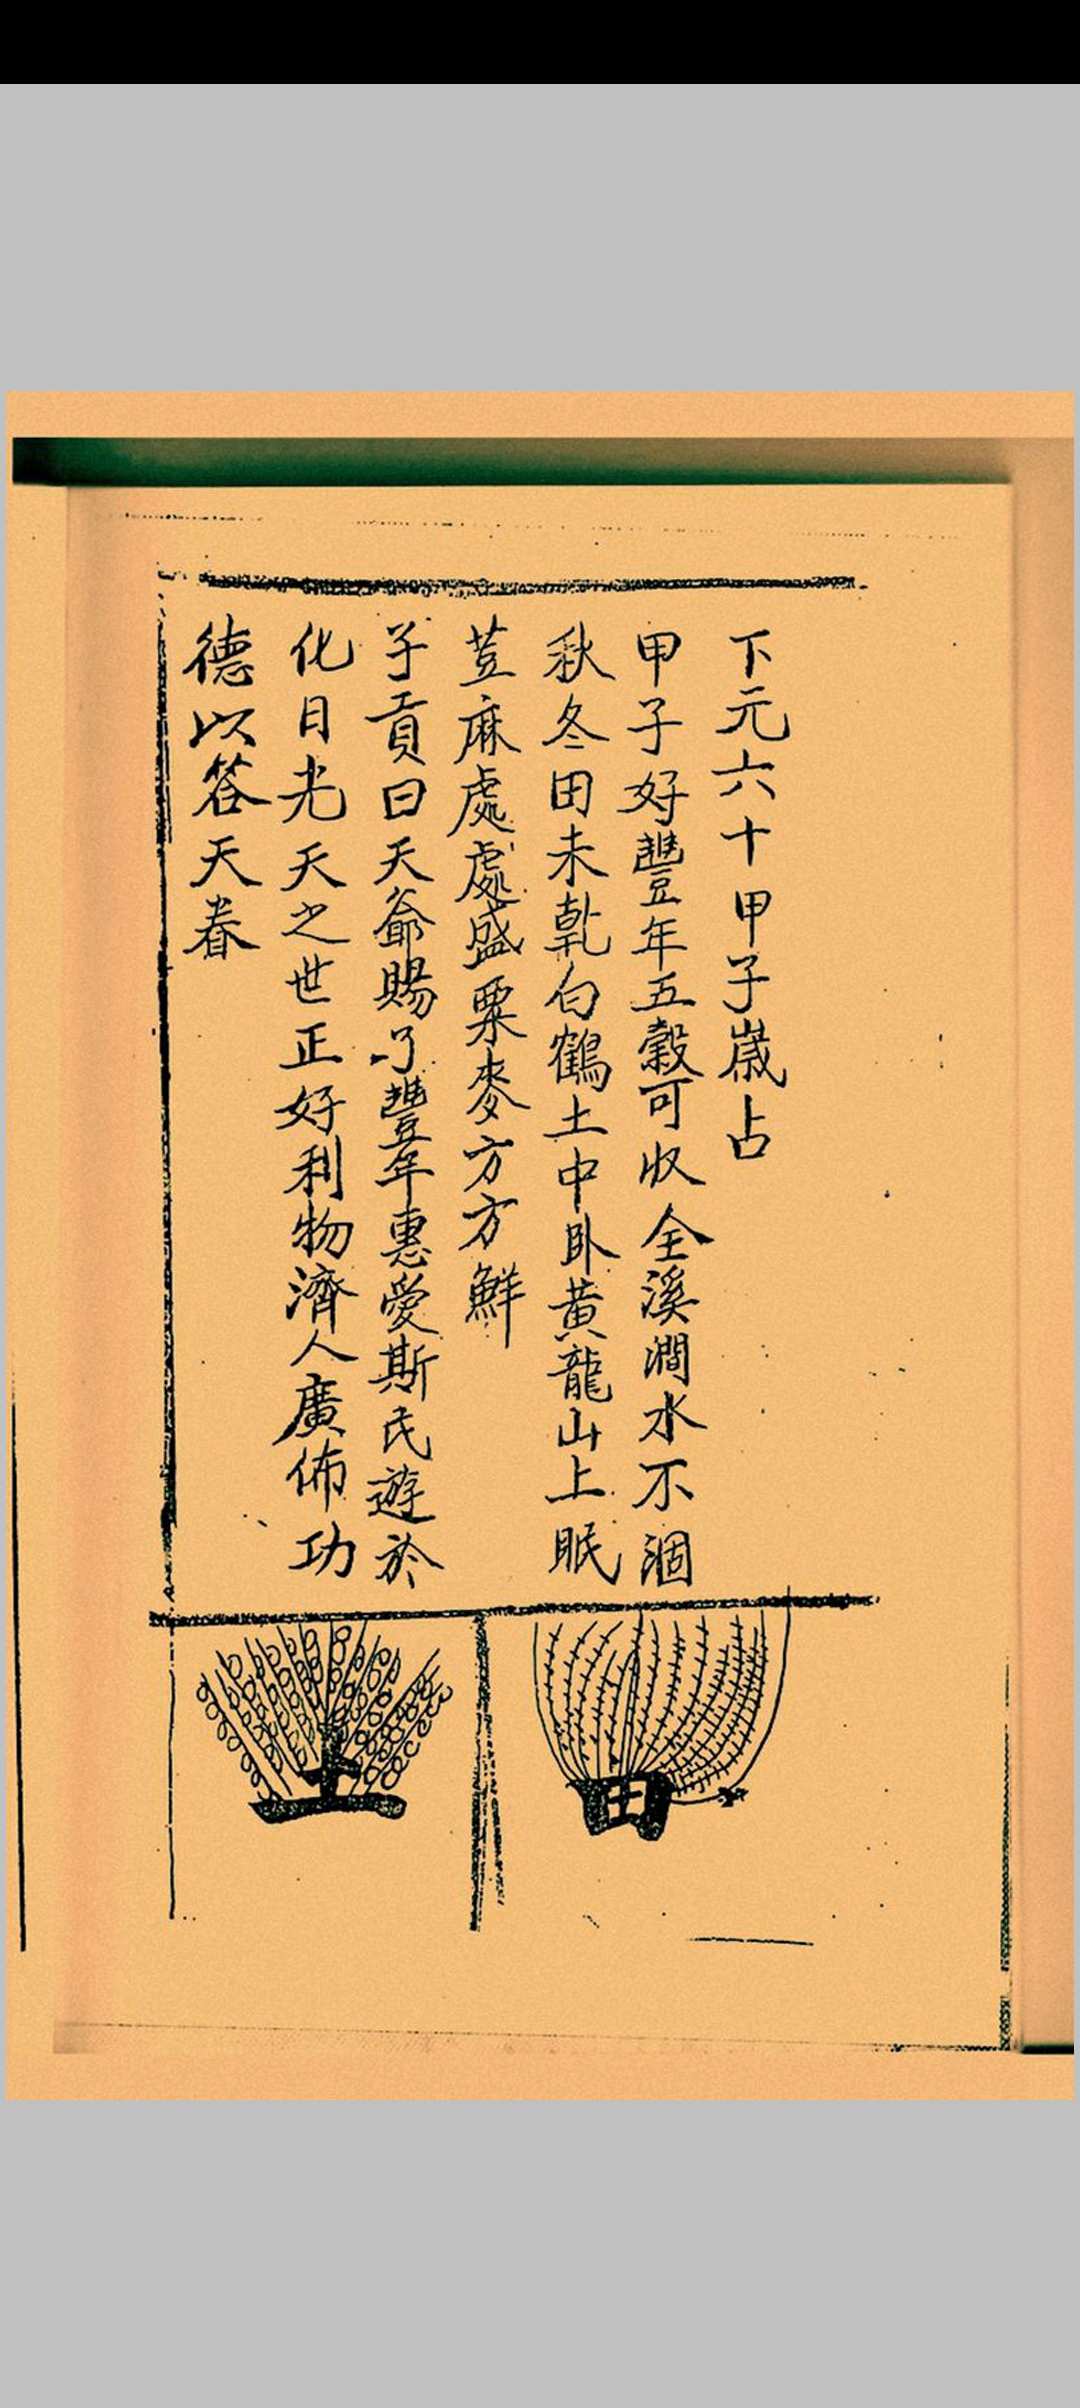 下元六十甲子歲占
甲子好豐年五穀可收全溪澗水不涸
秋冬田未乾白鶴土中卧黃龍山上眠
荳麻處處盛粟麥方方鮮
子貢曰天爺賜了豐年惠愛斯民遊於
化日光天之世正好利物濟人廣佈功
德以答天眷
田
土